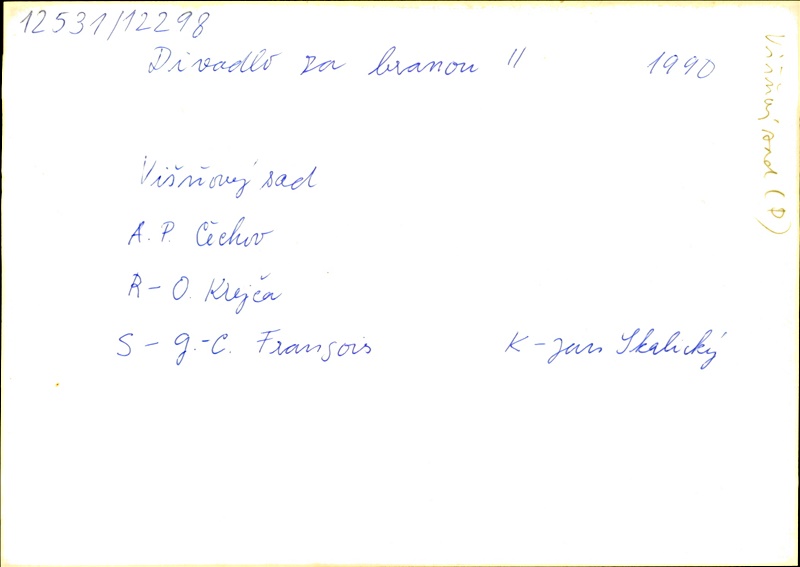 12531/12298
Divadlo za branou II 1990
Višňový sad
A. P. Čechov
R - O. Krejča
S - G.-C. François K - Jan Skalický
Višňový sad (P)